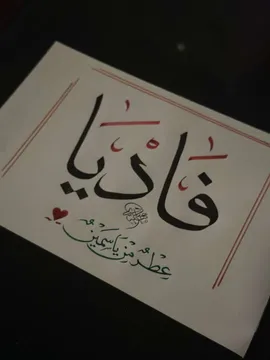 فَادْيَا
عِطْرٌ مِنْ يَاسَمِينٌ